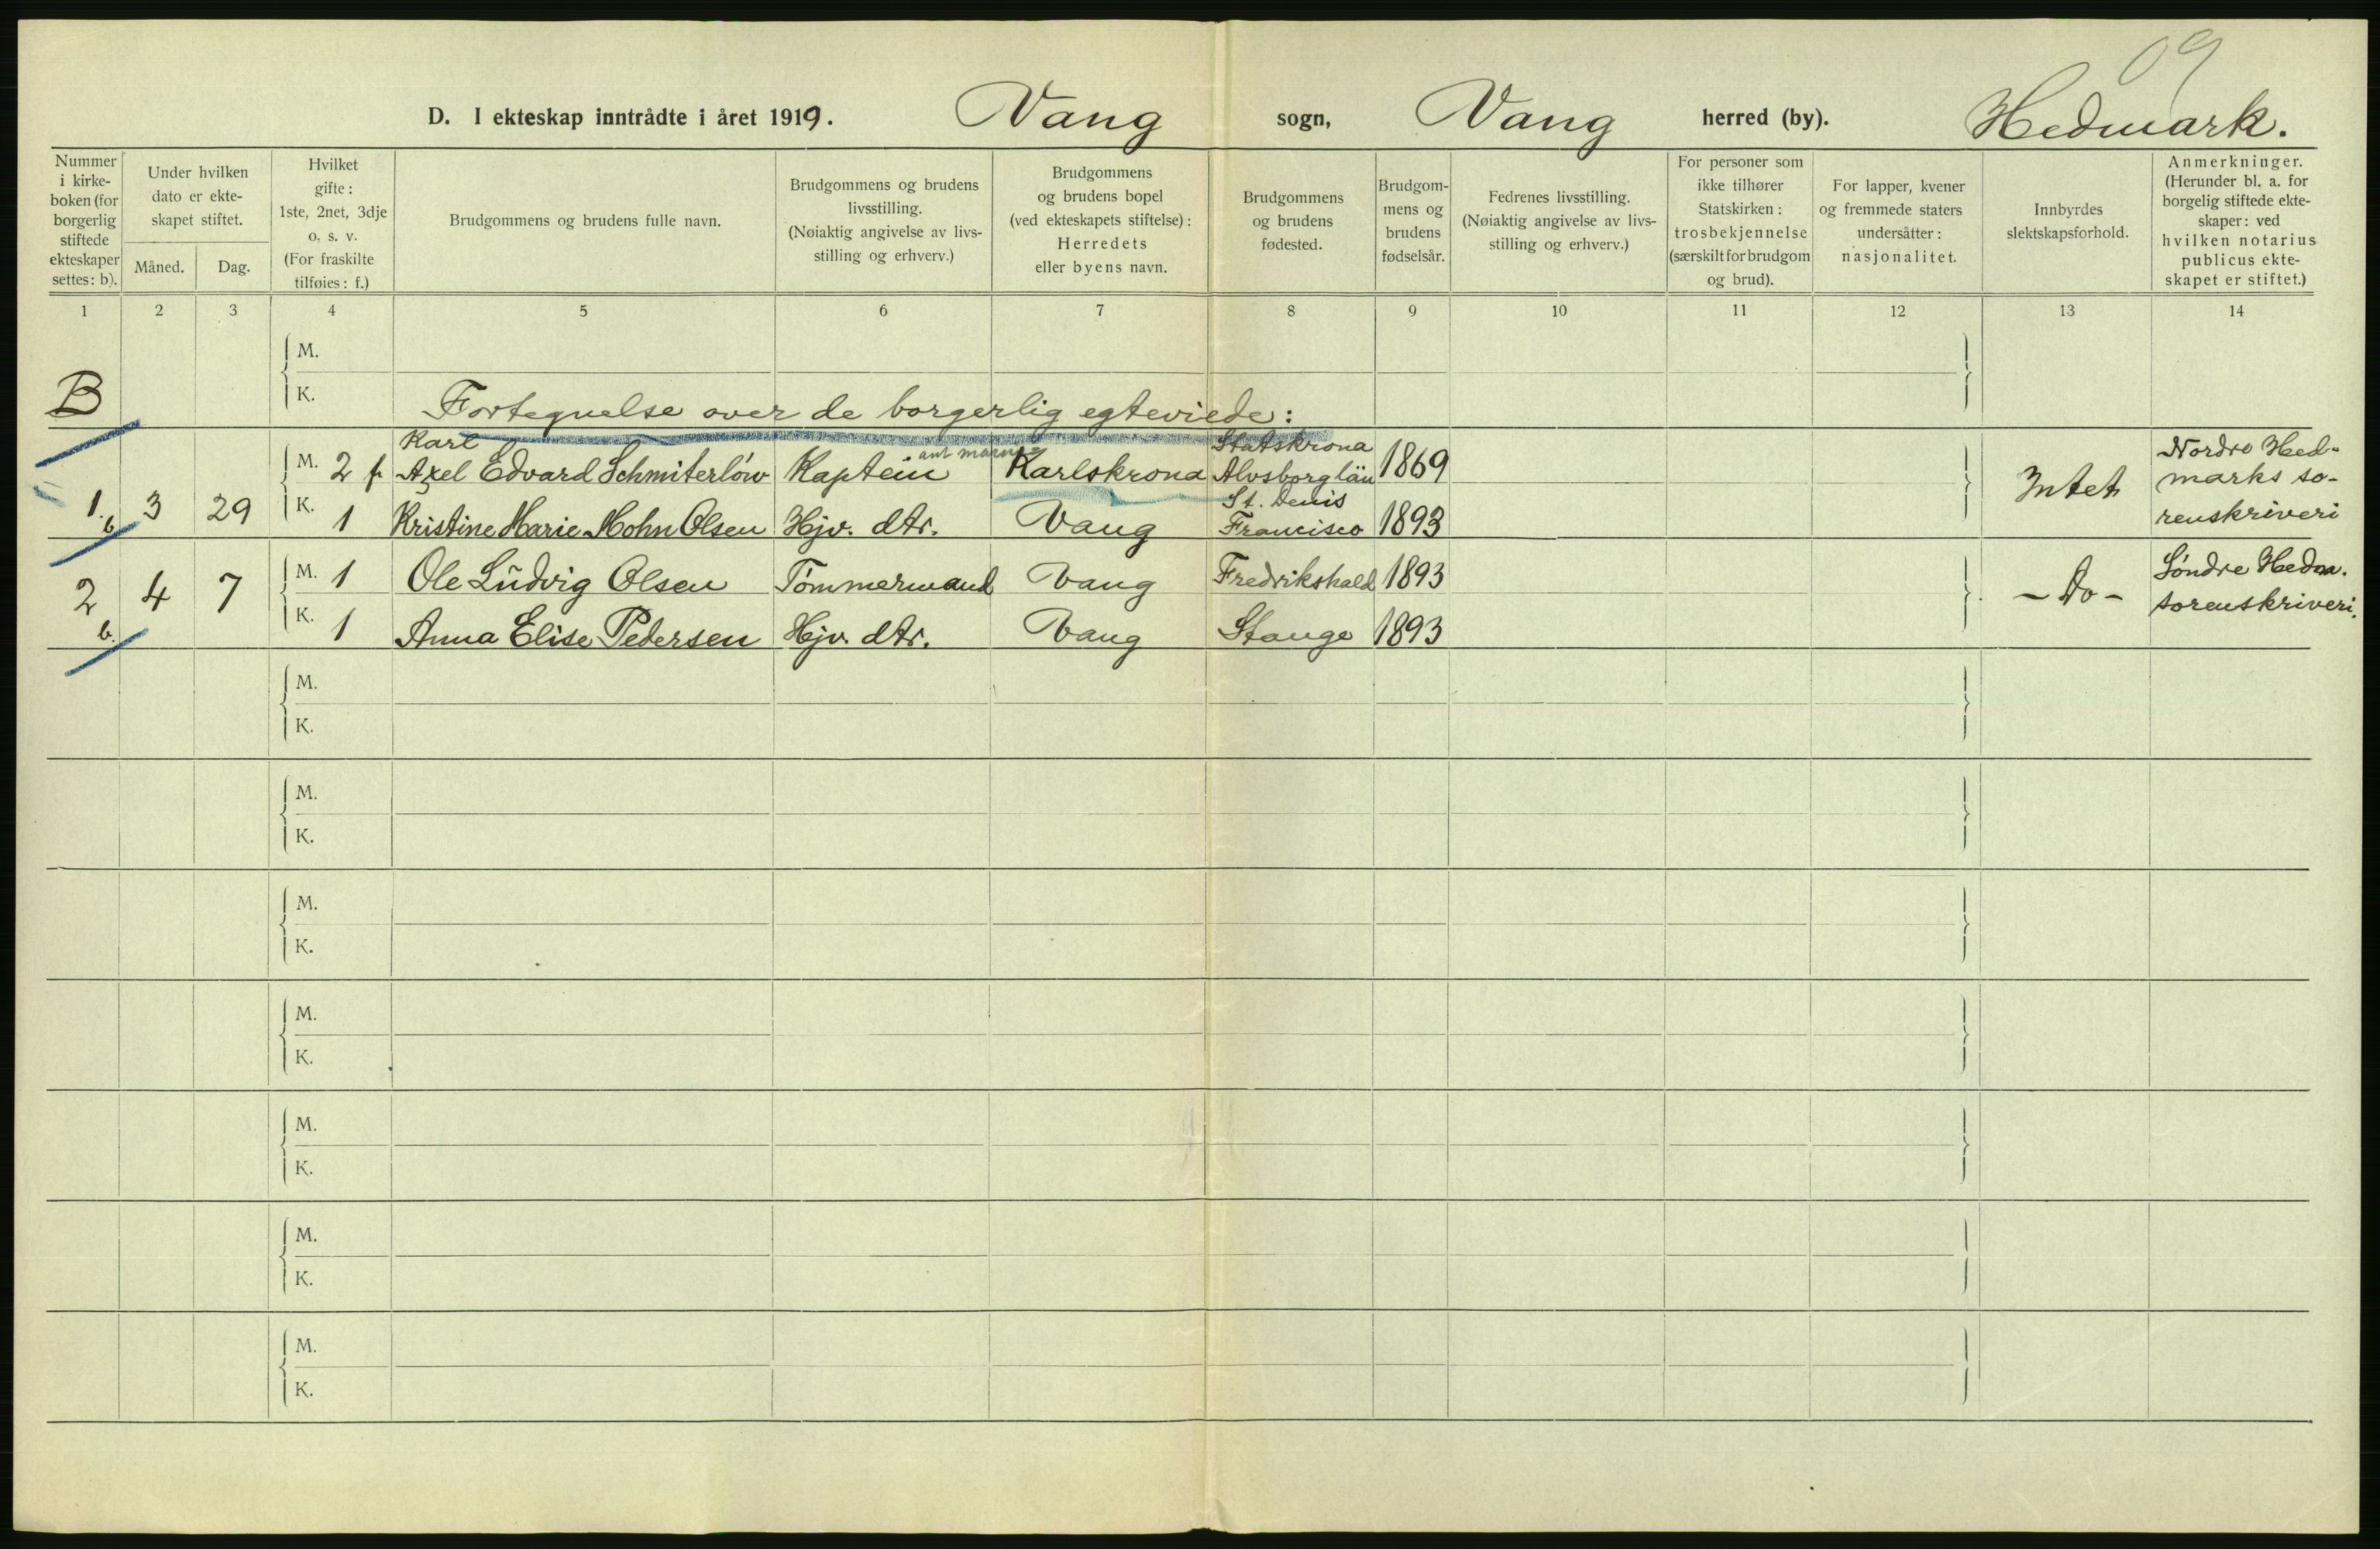 09
D. I ekteskap inntrådte i året 1919. Vang sogn, Vang herred (by). Hedmark.
Nummer
i kirke-
boken (for
borgerlig
stiftede
ekteskaper
settes: b).
Under hvilken
dato er ekte-
skapet stiftet.
Måned. Dag.
Hvilket
gifte:
1ste, 2net, 3dje
o. s. v.
(For fraskilte
tilføies: f.)
Brudgommens og brudens fulle navn.
Brudgommens og brudens
livsstilling.
(Nøiaktig angivelse av livs-
stilling og erhverv.)
Brudgommens
og brudens bopel
(ved ekteskapets stiftelse):
Herredets
eller byens navn.
Brudgommens
og brudens
fødested.
Brudgom-
mens og
brudens
fødselsår.
Fedrenes livsstilling.
(Nøiaktig angivelse av livs-
stilling og erhverv.)
For personer som
ikke tilhører
Statskirken:
trosbekjennelse
(særskilt for brudgom
og brud).
For lapper, kvener
og fremmede staters
undersåtter:
nasjonalitet.
Innbyrdes
slektskapsforhold.
Anmerkninger.
(Herunder bl. a. for
borgelig stiftede ekte-
skaper: ved
hvilken notarius
publicus ekte-
skapet er stiftet.)
1 2 3 4 5 6 7 8 9 10 11 12 13 14
M.
B K. Fortegnelse over de borgerlig egteviede:
Karl Statskrona
M. 2 f Axel Edvard Schmiterløw Kaptein Karlskrona Alvsborglän 1869
1. b 3 29 K. 1 Kristine Marie Mohn Olsen Hjv. dtr. Vang St. Denis
Francisco 1893
Intet
Nordre Hed-
marks so-
renskriveri
2 b. 4 7 M. 1 Ole Ludvig Olsen Tømmermand Vang Fredrikshald 1893
K. 1 Anna Elise Pedersen Hjv. dtr. Vang Stange 1893
- Do -
Søndre Hedm.
sorenskriveri.
M.
K.
M.
K.
M.
K.
M.
K.
M.
K.
M.
K.
M.
K.